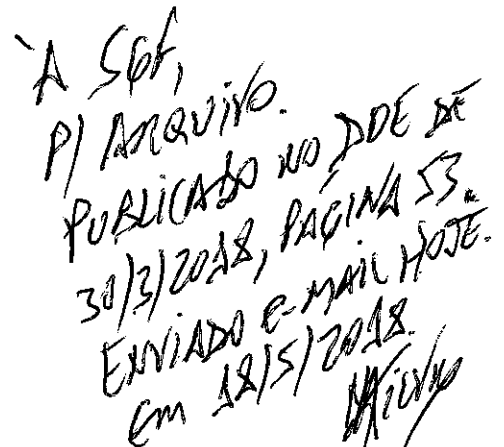 À SGF,
P/ ARQUIVO.
PUBLICADO NO DOE DE
30/3/2018, PÁGINA 53.
ENVIADO E-MAIL HOJE.
Em 18/5/2018.